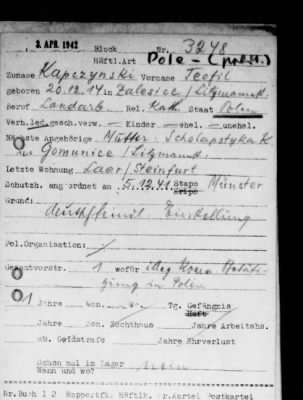 3. APR. 1942 Block Nr. 3248
Häftl.Art Pole - (polit.)
Zuname Kapczynski Vorname Teofil
geboren 20.12.14 in Zalesice/Litzmannst.
Beruf Landarb. Rel. Kath. Staat Polen
Verh. led. gesch. verw. - Kinder - ehel. - unehel.
Nächste Angehörige Mutter: Scholapstyka K
Gomunice/Litzmannst.
Letzte Wohnung Laer/Steinfurt
Schutzh. ang ordnet am 5.12.41 Stapo Kripo Münster
Grund:
deutschfeindl. Einstellung
Pol.Organisation: /
Gesamtvorstr. 1 wofür illeg. Betäti-
gung in Polen
1 Jahre - Mon. - Wo. - Tg. Gefängnis Haft
Jahre Mon. Zuchthaus Jahre Arbeitshs.
RM. Geldstrafe Jahre Ehrverlust
Schon mal im Lager nein
Wann und wo?
Nr.Buch 1 2